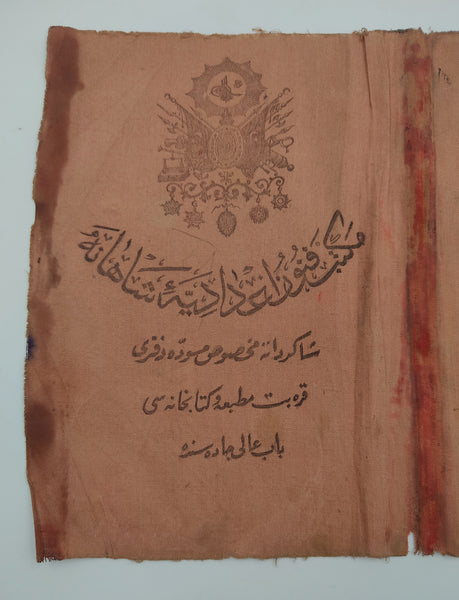 مكتب فنون اعدادیهٔ شاهانه
شاكردانه مخصوص مسوده دفتری
قره بت مطبعه و كتابخانه سی
باب عالی جاده سنده